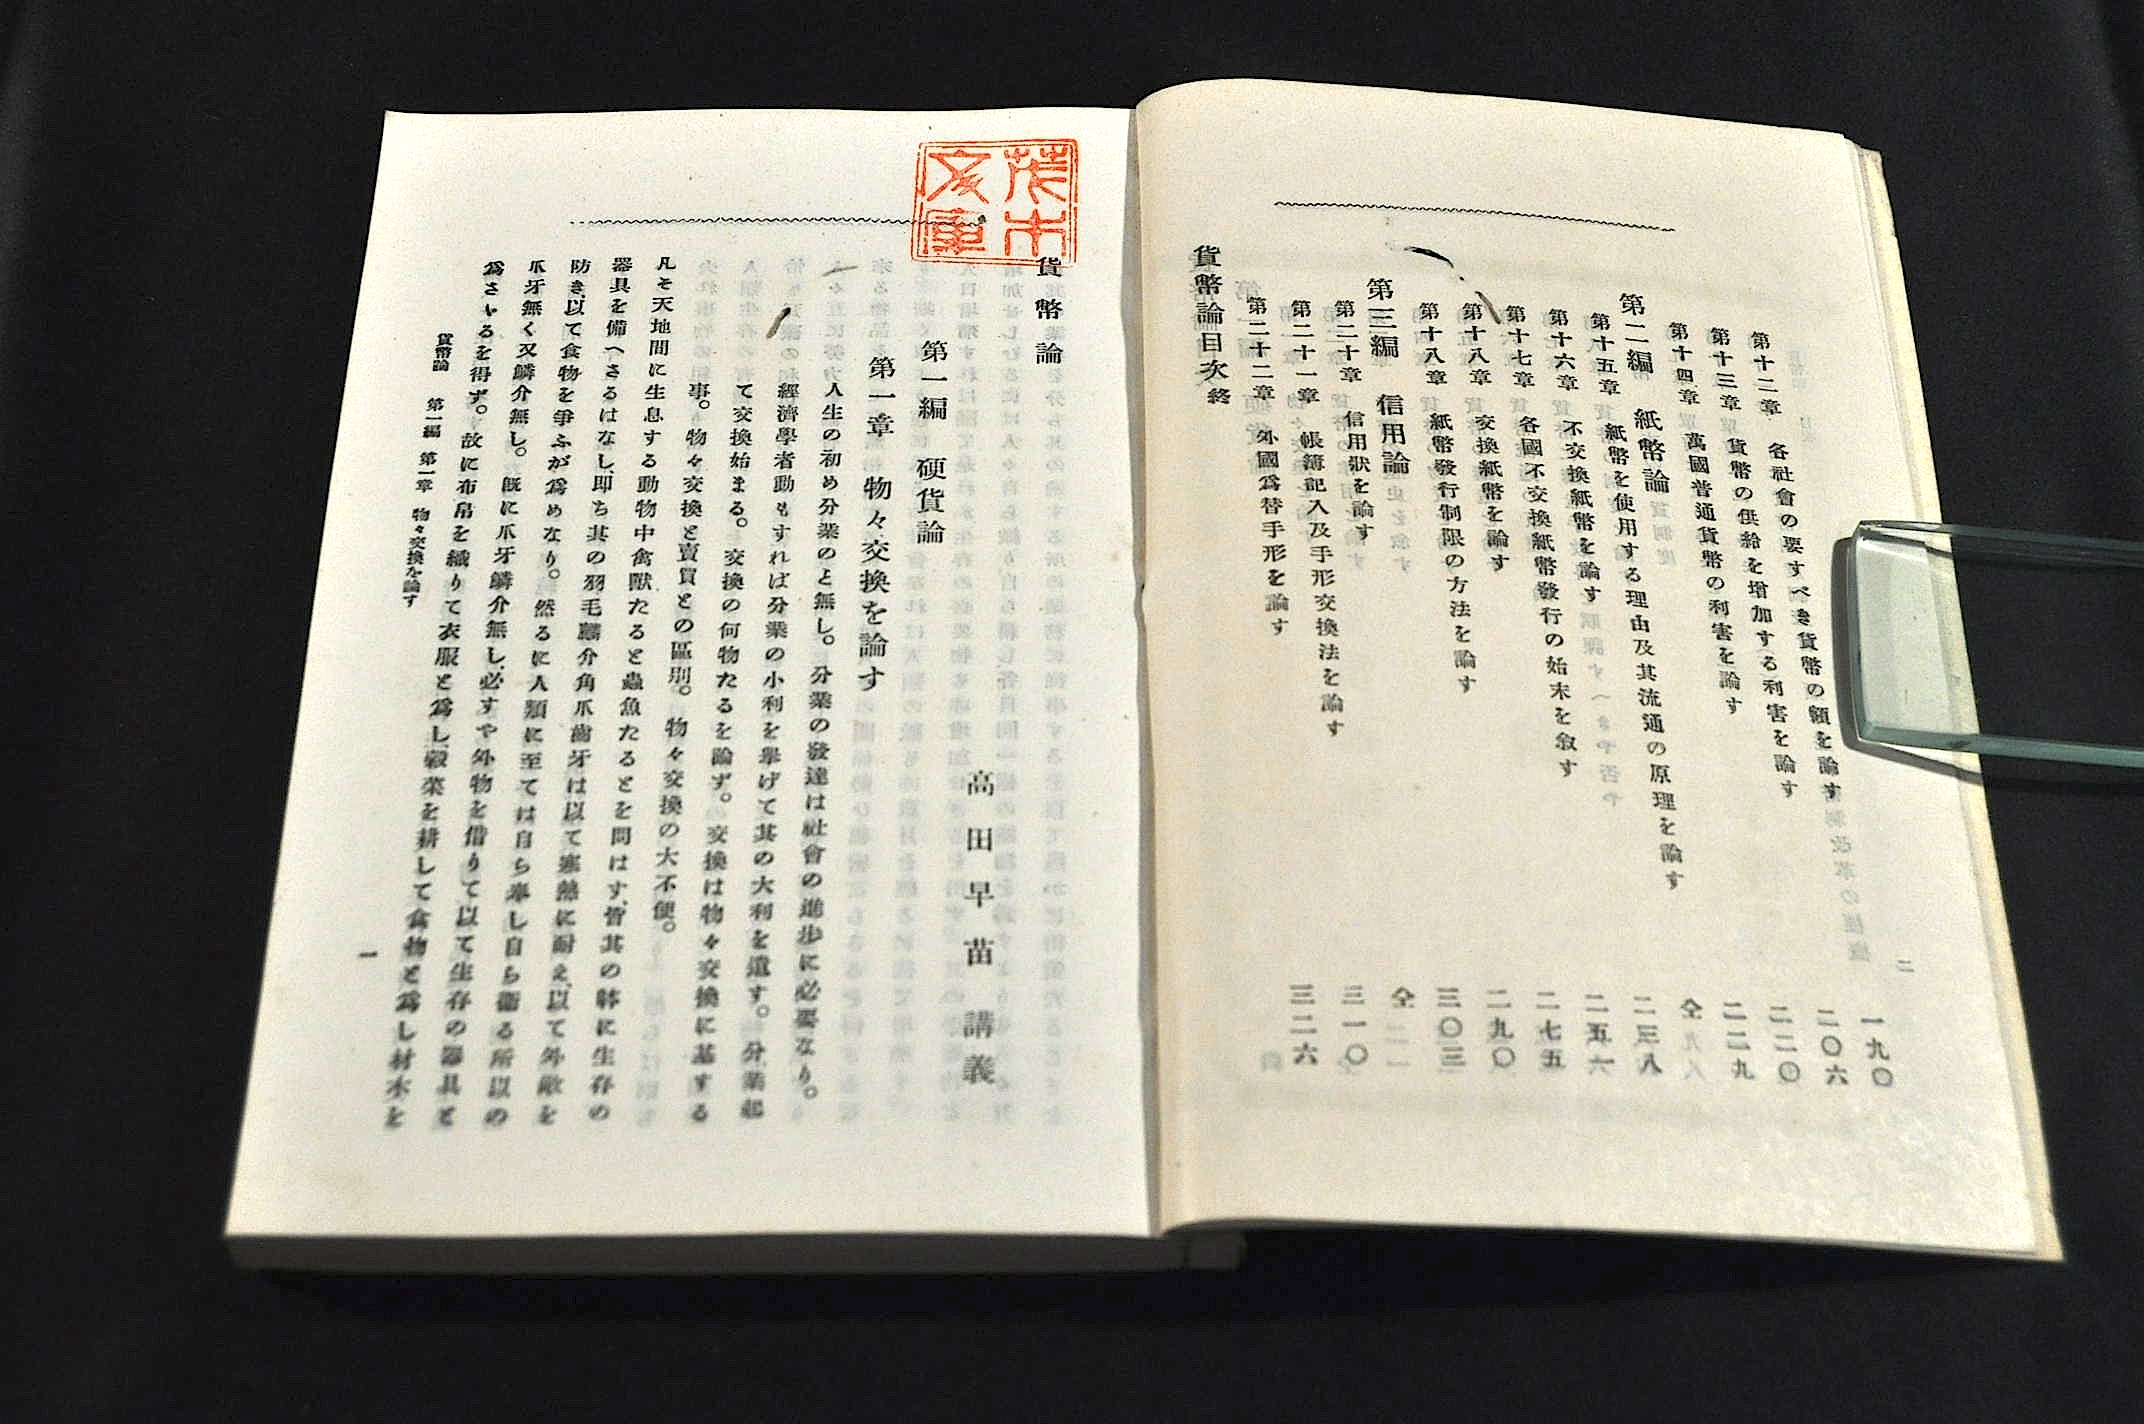 二
第十二章 各社會の要すべき貨幣の額を論す 一九〇
第十三章 貨幣の供給を增加する利害を論す 二〇六
第十四章 萬國普通貨幣の利害を論す 二二〇
第二編 紙幣論 二二九
第十五章 紙幣を使用する理由及其流通の原理を論す 仝
第十六章 不交換紙幣を論す 二三八
第十七章 各國不交換紙幣發行の始末を敘す 二五六
第十八章 交換紙幣を論す 二七五
第十八章 紙幣發行制限の方法を論す 二九〇
第三編 信用論 三〇三
第二十章 信用狀を論す 仝
第二十一章 帳簿記入及手形交換法を論す 三一〇
第二十二章 外國爲替手形を論す 三二六
貨幣論目次終
茂木
文庫
貨幣論
高田早苗講義
第一編 硬貨論
第一章 物々交換を論す
人生の初め分業のと無し。分業の發達は社會の進步に必要なり。
經濟學者動もすれば分業の小利を擧げて其の大利を遺す。分業起
て交換始まる。交換の何物たるを論ず。交換は物々交換に基する
事。物々交換と賣買との區別。物々交換の大不便。
凡そ天地間に生息する動物中禽獸たると蟲魚たるとを問はす、皆其の躰に生存の
器具を備へさるはなし、即ち其の羽毛鱗介角爪齒牙は以て寒熱に耐え、以て外敵を
防き、以て食物を爭ふが爲めなり。然るに人類に至ては自ら奉し自ら衞る所以の
爪牙無く又鱗介無し。旣に爪牙鱗介無し、必すや外物を借りて以て生存の器具と
爲さゝるを得ず。故に布帛を織りて衣服と爲し、穀菜を耕して食物と爲し材木を
貨幣論 第一編 第一章 物々交換を論す
一